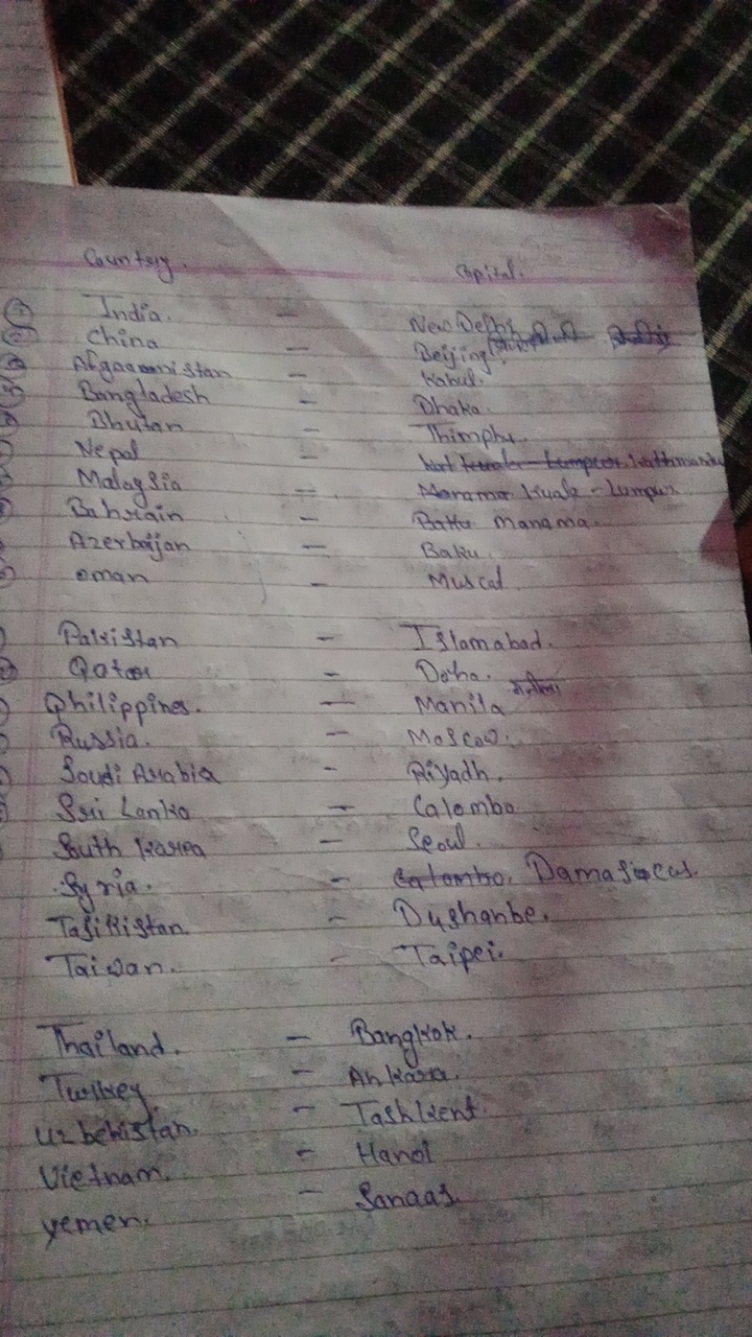 Country. Capital.
India. - New Delhi
China - Beijing
Afgaanistan - Kabul.
Bangladesh - Dhaka.
Bhutan - Thimphu.
Nepal - Kathmandu
Malaysia - Kuala - Lumpur
Bahrain - Manama.
Azerbaijan - Baku.
Oman - Muscat
Pakistan - Islamabad.
Qatar - Doha.
Philippines. - Manila मनीला
Russia. - Moscow.
Soudi Arabia - Riyadh.
Sri Lanka - Colombo
South Korea - Seoul.
Syria. - Colombo. Damascus.
Tajikistan - Dushanbe.
Taiwan. - Taipei.
Thailand. - Bangkok.
Turkey - Ankara.
Uzbekistan. - Tashkent.
Vietnam. - Hanoi
Yemen. - Sanaas